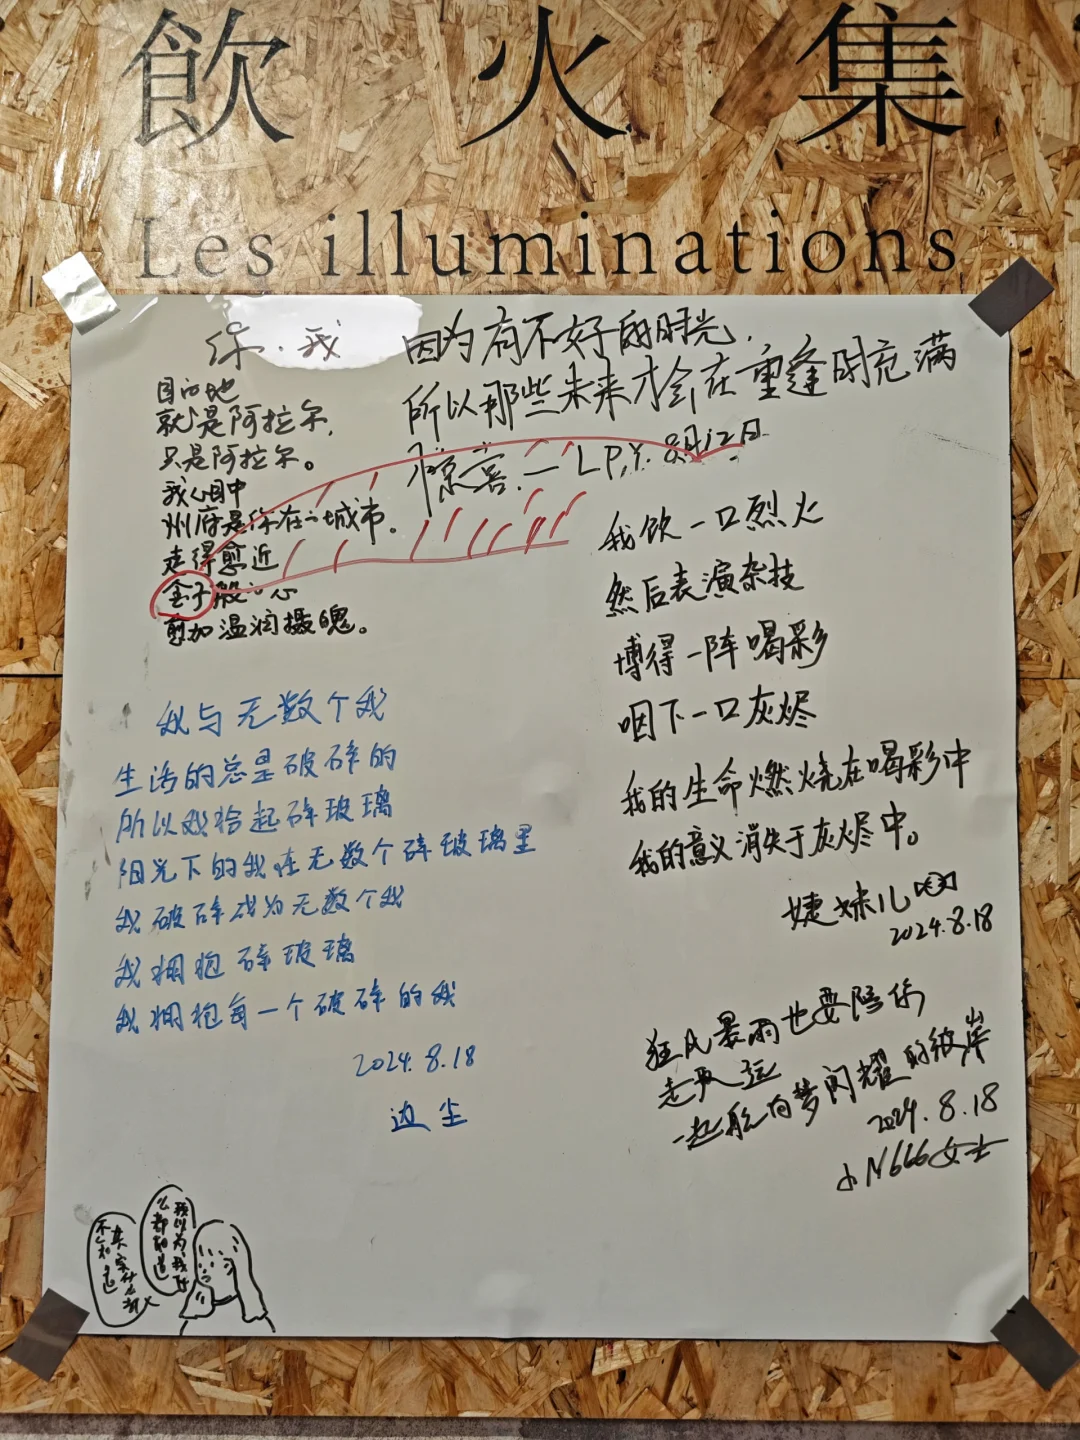 飲火集
Les illuminations
你·我
目的地
就是阿拉尔,
只是阿拉尔。
我心目中
州府是你在的城市。
走得愈近
金子般的心
愈加温润摄魄。
因为有不好的时光,
所以那些未来才会在重逢时充满
惊喜.—LP.Y. 8月12日
我饮一口烈火
然后表演杂技
博得一阵喝彩
咽下一口灰烬
我的生命燃烧在喝彩中
我的意义消失于灰烬中。
婕妹儿
2024.8.18
我与无数个我
生活的总是破碎的
所以我拾起碎玻璃
阳光下的我在无数个碎玻璃里
我破碎成为无数个我
我拥抱碎玻璃
我拥抱每一个破碎的我
2024.8.18
边尘
狂风暴雨也要陪你
走更远
一起航向梦闪耀的彼岸
2024.8.18
小N666女士
我以为我什
么都知道
其实什么都
不知道